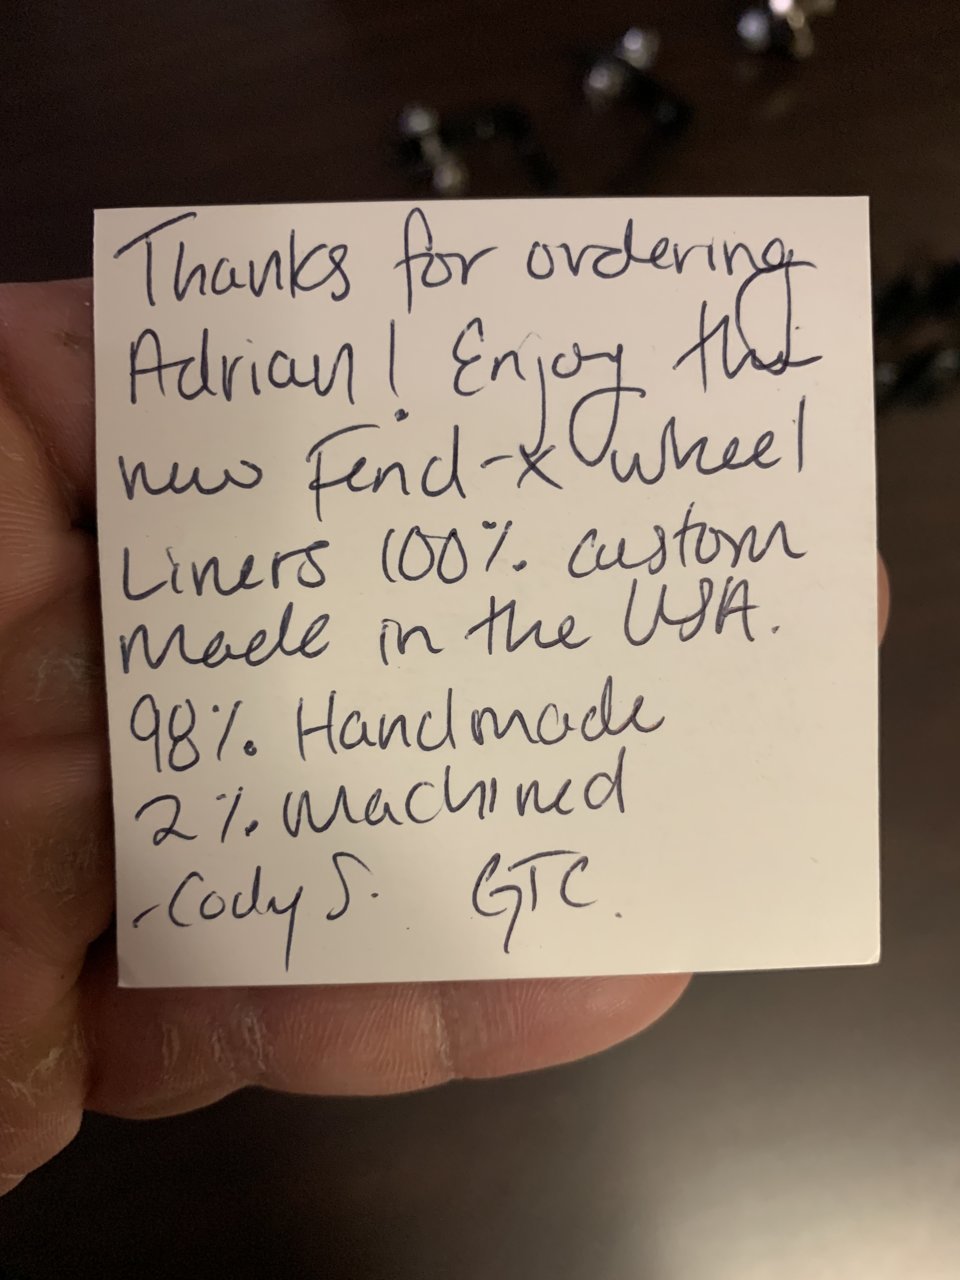 Thanks for ordering
Adrian! Enjoy the
new Fend-x wheel
Liners 100% custom
made in the USA.
98% Handmade
2% Machined
-Cody S. GTC.